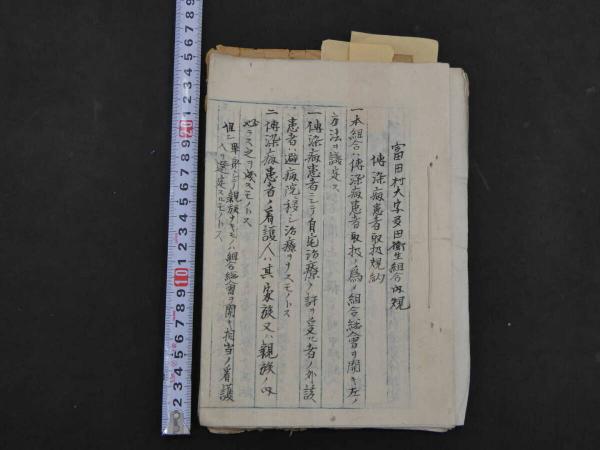 富田村大字多田衛生組合内規
傳染病患者取扱規約
一本組合ハ傳染病患者取扱ノ爲メ組合総會ヲ開キ左ノ
方法ヲ議定ス
一傳染病患者ニシテ自宅治療ノ許可ヲ受ケ者ノ外該
患者ハ避病院移シ治療ヲナスモノトス
二傳染病患者ノ看護人ハ其家族又ハ親族ノ内
ヨリ之ヲ
但シ單身ニシテ親族ナキモノハ組合総會ヲ開キ相当ノ看護
人ヲ選定スルモノトス
23456789 10 123456789 20 123456789